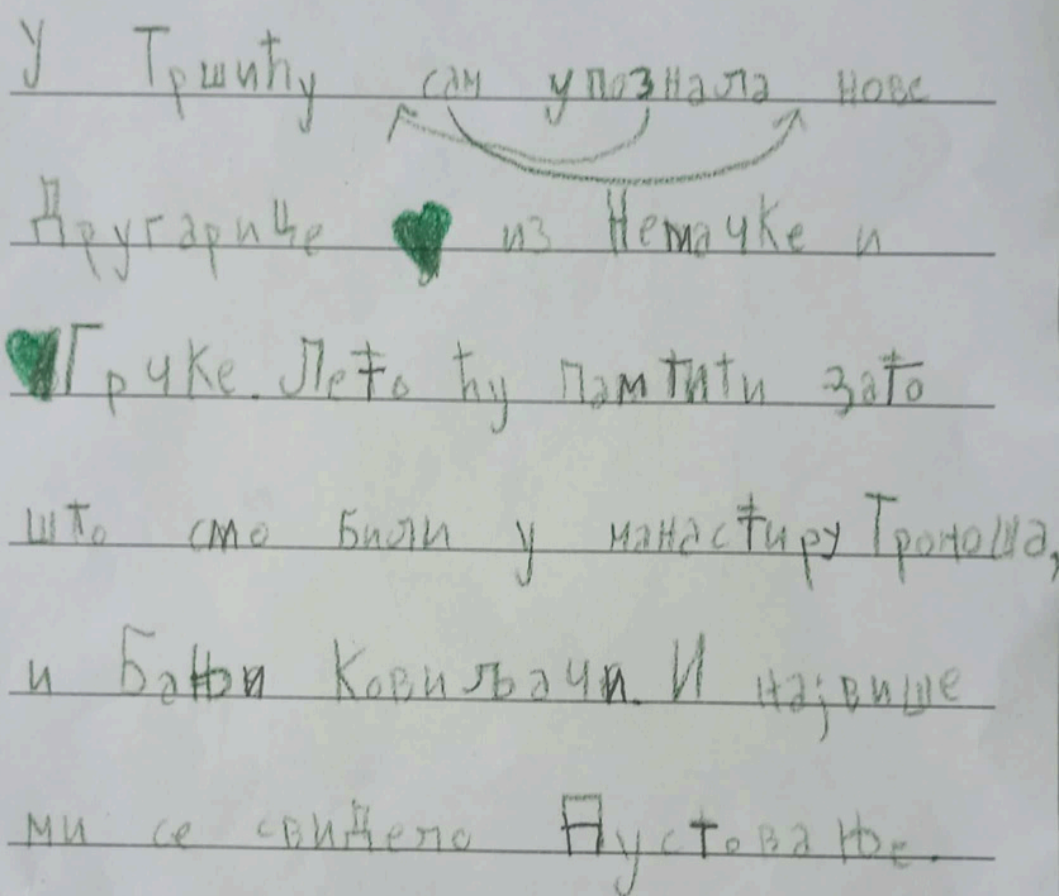 У Тршићу сам упознала нове
Другарице из Немачке и
Грчке. Лето ћу памтити зато
што смо били у манастиру Троноша,
и Бањи Ковиљачи. И највише
ми се свидело